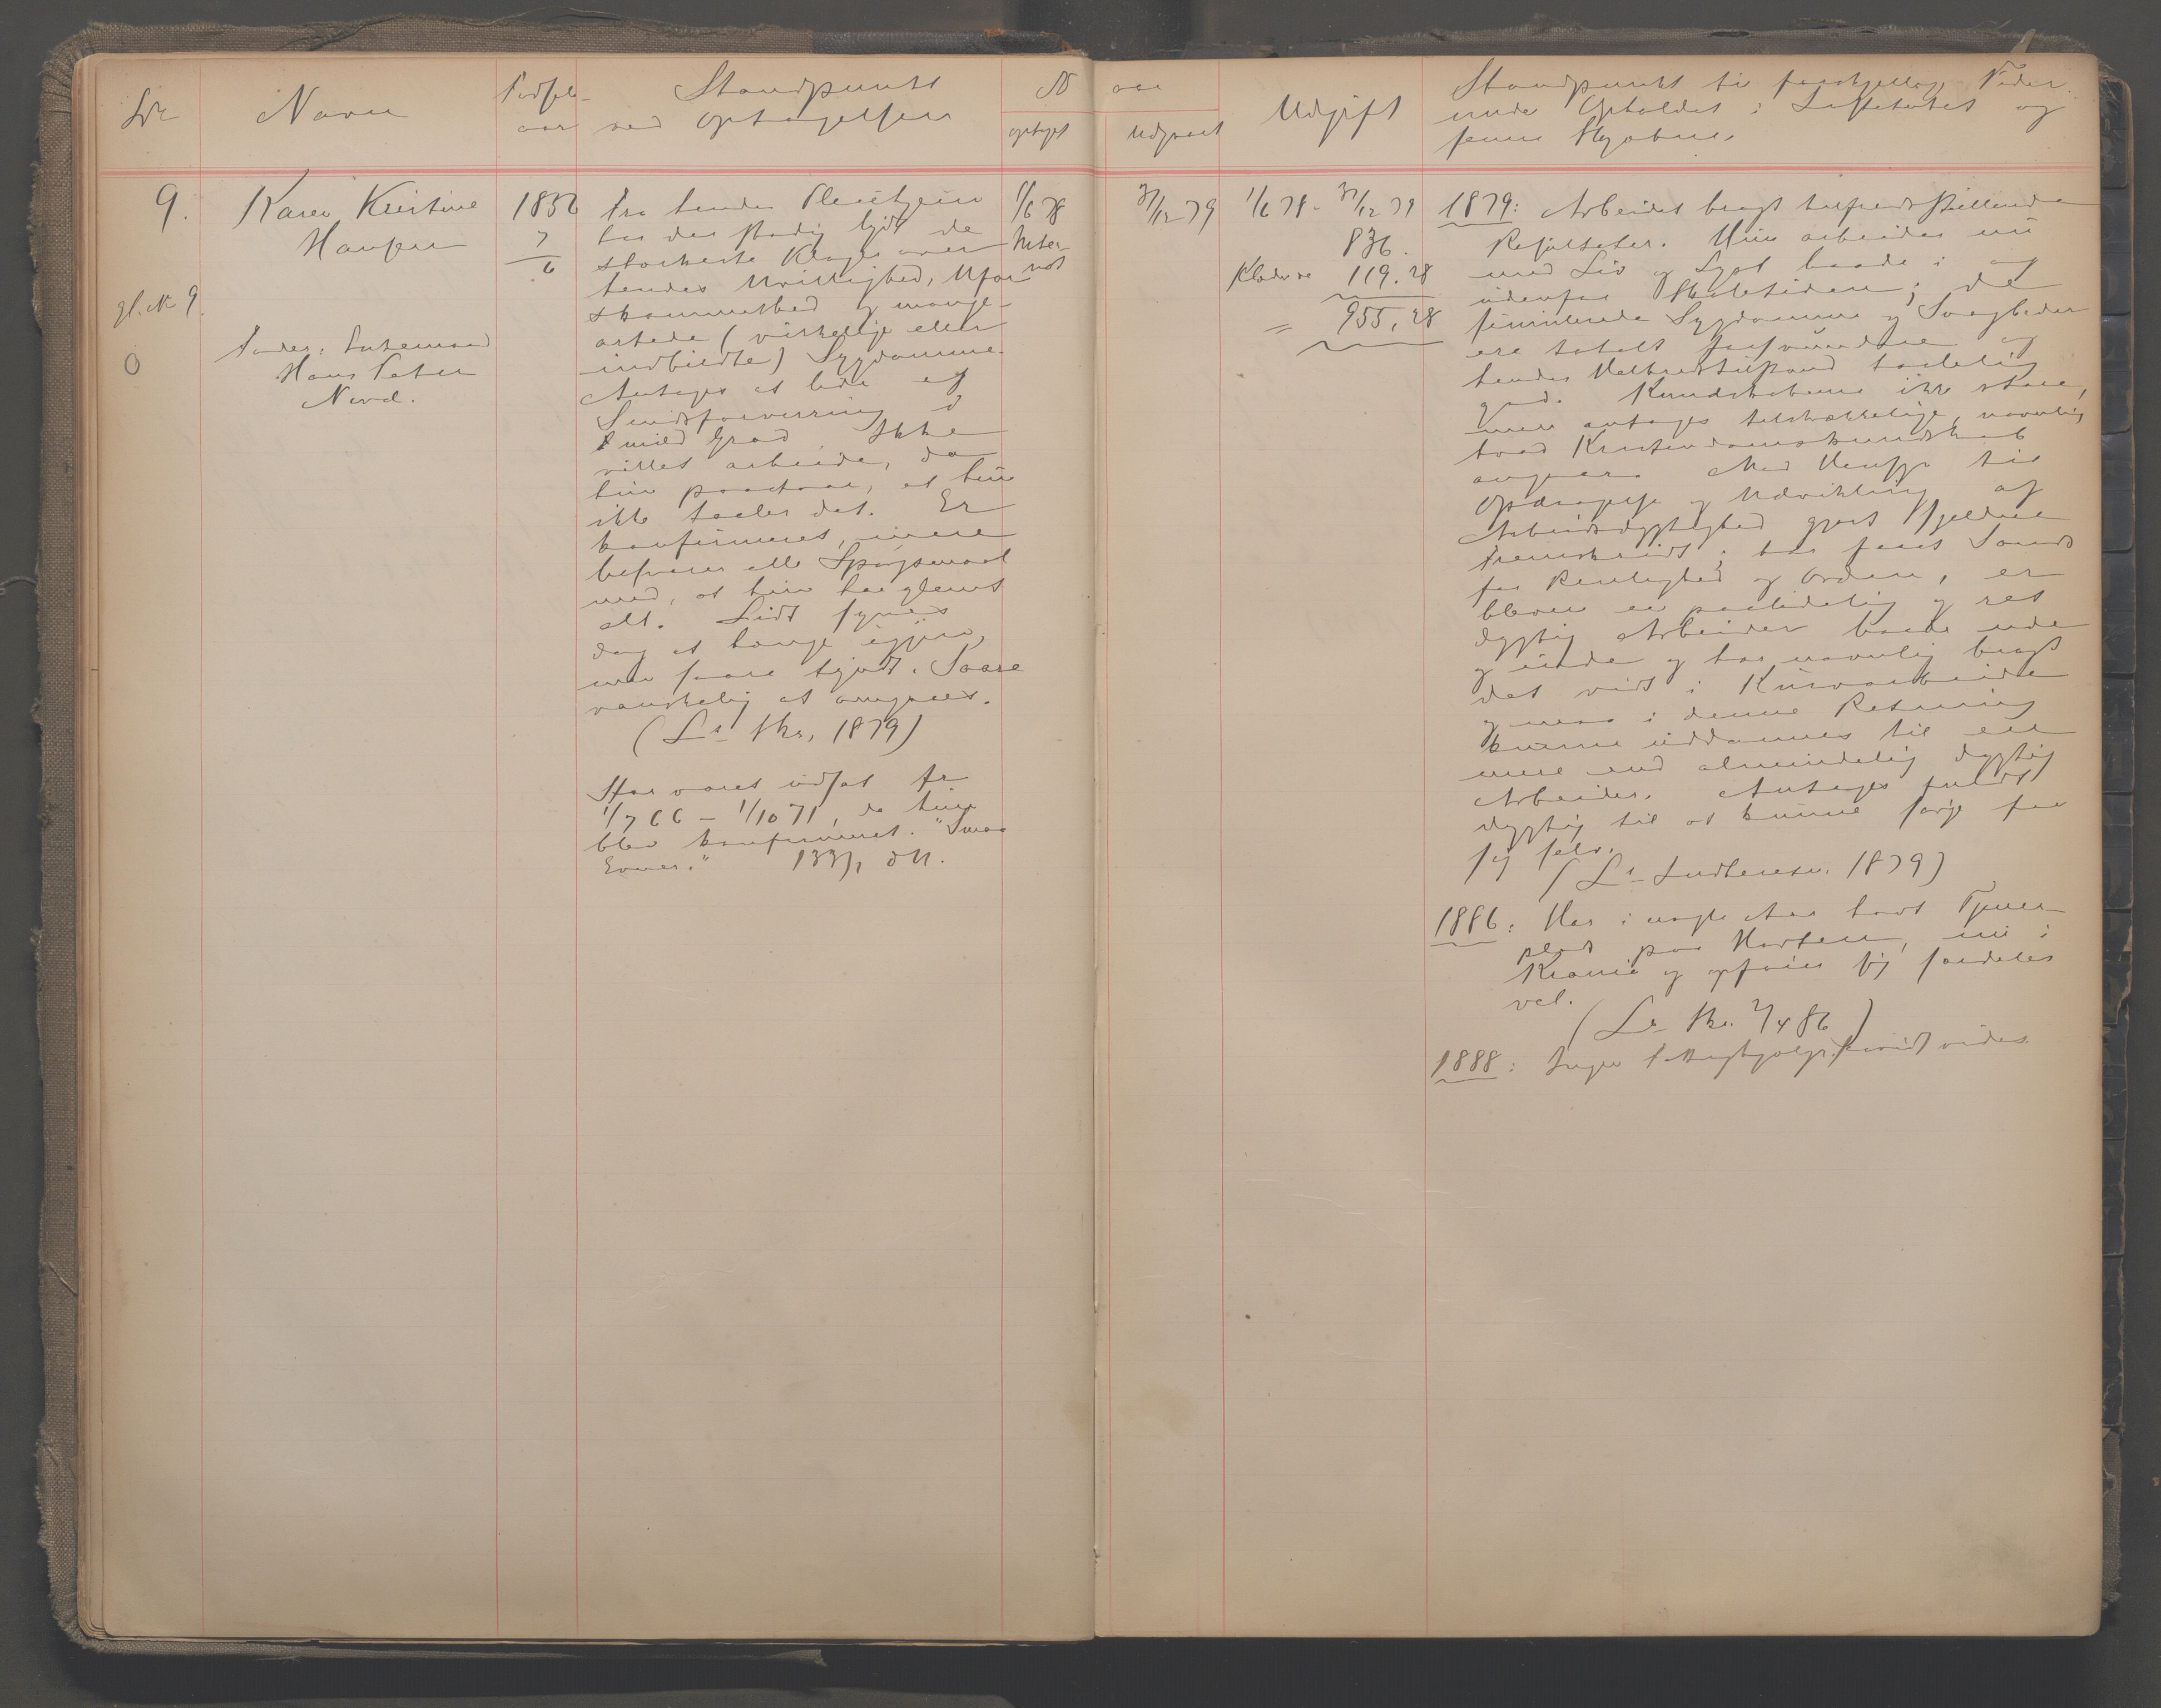 Navn
Fødsels-
aar
Standpunkt
ved Optagelsen
N
optaget
9.
Karen Kristine
Hansen
gl. No 9.
0
Hans Peter
1856
7
6
Fra hendes Pleiehjem
har der stadig lydt de
stærkeste Klager over
hendes Uvillighed, Ufor-
skammethed og mange-
artede (virkelige eller
indbildte) Sygdomme.
Antages at lide af
Sindsforvirring i
mild Grad. Ikke
villet arbeide, da
hun paastaar, at hun
ikke taaler det. Er
konfirmeret, men
besvarer alle Spørgsmaal
med, at hun har glemt
alt. Lidt synes
dog at hænge igjen,
men saare tyndt. Saare
vanskelig at omgaaes.
(Lr Skr. 1879)
Har været udsat fra
1/7 66 – 1/10 71, da hun
blev konfirmeret. "Smaa
Evner."
1/6 78
Inter-
nat
aar
Udgaaet
Udgift
Standpunkt til forskjellige Tider
under Opholdet i Instituttet og
senere Skjæbne.
31/12 79
1/6 78 - 31/12 79
836.
Klæder 119.28
= 955,28
1879: Arbeidet bragt tilfredsstillende
Resultater. Hun arbeider nu
med Liv og Lyst baade i og
udenfor Skoletiden; de
simulerede Sygdomme og Svagheder
ere totalt forsvundne og
hendes Helbredstilstand taalelig
god. Kundskaberne ikke store,
men antages tilstrækkelige, navnlig
hvad Kristendomskundskab
angaar. Med Hensyn til
Opdragelse og Udvikling af
Arbeidsdygtighed gjort sjeldne
Fremskridt; har faaet Sands
for Renlighed og Orden, er
bleven en paalidelig og ret
dygtig Arbeider baade ude
og inde og har navnlig bragt
det vidt i Kurvarbeide
og maa i denne Retning
kunne uddannes til en
mere end almindelig dygtig
Arbeider. Antages fuldt
dygtig til at kunne sørge for
sig selv.
(Lr Indberetn. 1879)
1886: Har i nogle Aar havt Tjener-
plads paa Horten, nu i
Krania og opfører sig særdeles
vel.
(Lr Skr. 2/4 86)
1888: Ingen Fattighjælp, saavidt vides.